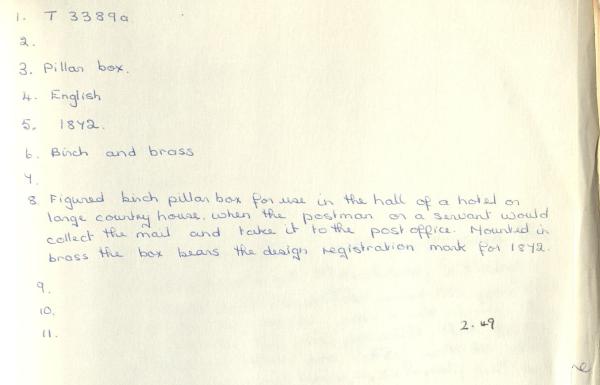 1. T 3389a
2.
3. Pillar box.
4. English
5. 1872.
6. Birch and brass
7.
8. Figured birch pillar box for use in the hall of a hotel or
large country house, when the postman or a servant would
collect the mail and take it to the post office. Mounted in
brass the box bears the design registration mark for 1872.
9.
10.
11.
2.49